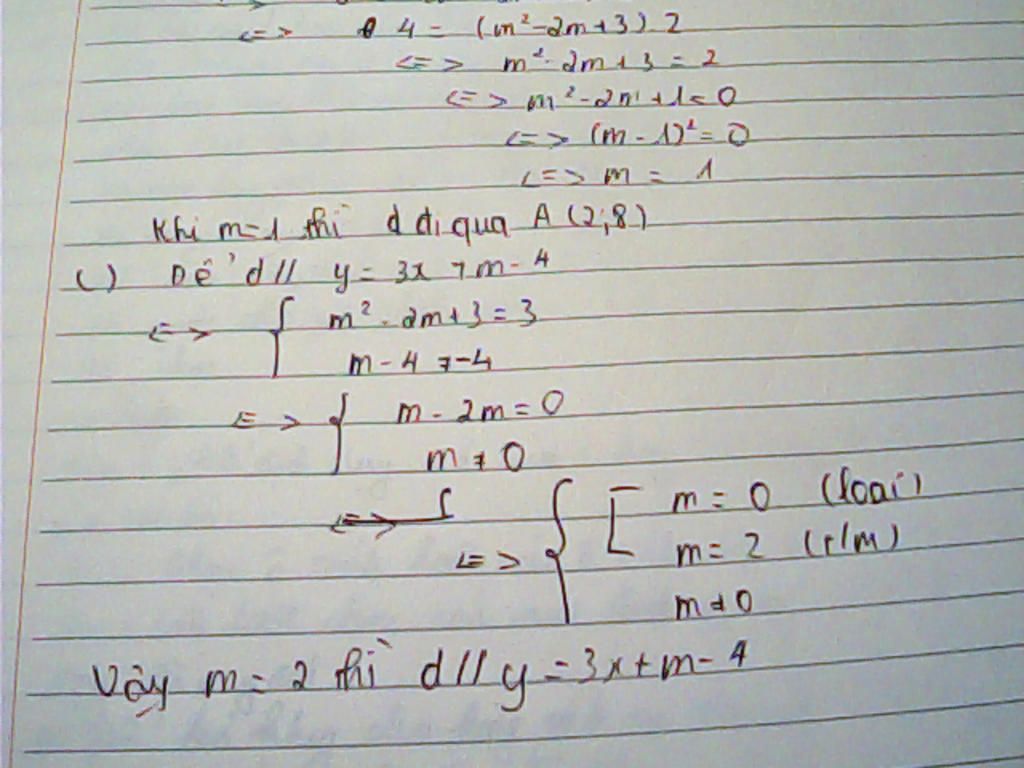 <=> 4 = (m²-2m+3).2
<=> m²-2m+3 = 2
<=> m²-2m+1=0
<=> (m-1)²=0
<=> m = 1
Khi m=1 thì d đi qua A(2;8)
c) Để d// y=3x+m-4
<=> { m²-2m+3=3
m-4≠-4
<=> { m-2m=0
m≠0
<=> { [ m=0 (loại)
m=2 (t/m)
m≠0
Vậy m=2 thì d//y=3x+m-4